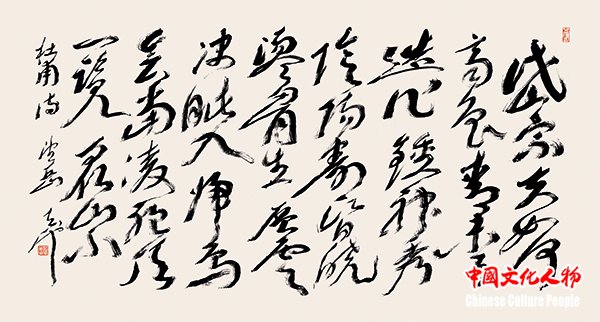 岱宗夫如何
齊魯青未了
造化鍾神秀
陰陽割昏曉
盪胸生層雲
決眥入歸鳥
會當凌絕頂
一覽眾山小
杜甫诗 望岳
中國文化人物
Chinese Culture People